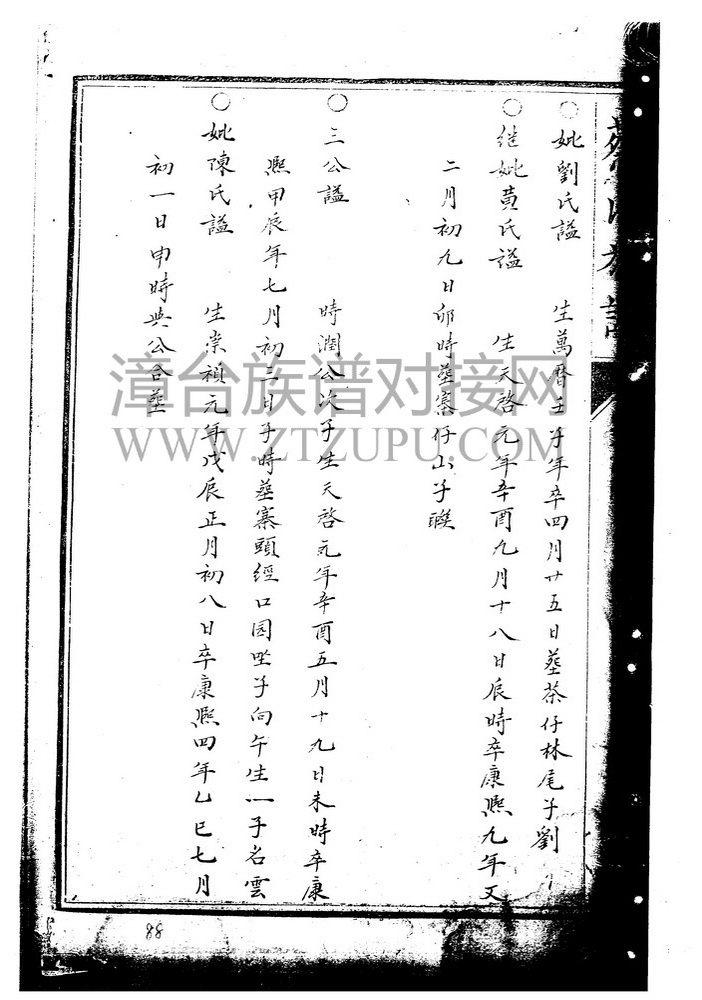 ○妣劉氏謚 生萬曆壬子年卒四月廿五日塟茶仔林尾子劉
○继妣黄氏謚 生天啓元年辛酉九月十八日辰時卒康熙九年又
二月初九日卯時塟寨仔山子
○三公謚 時潤公次子生天啓元年辛酉五月十九日未時卒康
熙甲辰年七月初三日子時塟寨頭經口园坐子向午生一子名雲
○妣陳氏謚 生崇禎元年戊辰正月初八日卒康熙四年乙巳七月
初一日申時與公合塟
漳台族谱对接网
WWW.ZTZUPU.COM
88